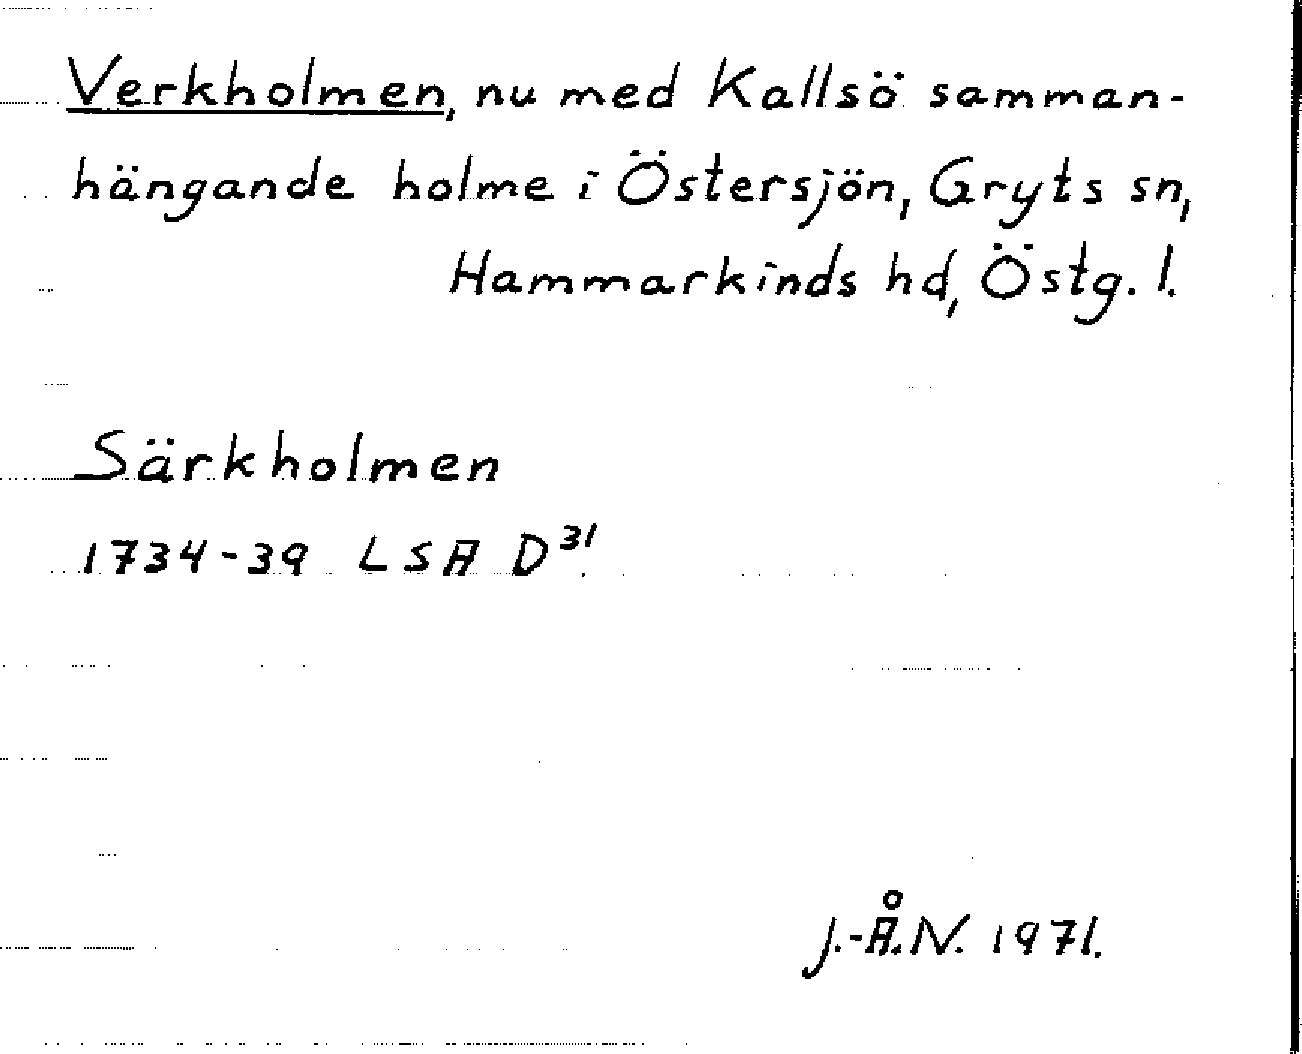 Verkholmen, nu med Kallsö samman-
hängande holme i Östersjön, Gryts sn,
Hammarkinds hd, Östg. l.
Särkholmen
1734-39 LSA D³¹
J.-Å.N. 1971.